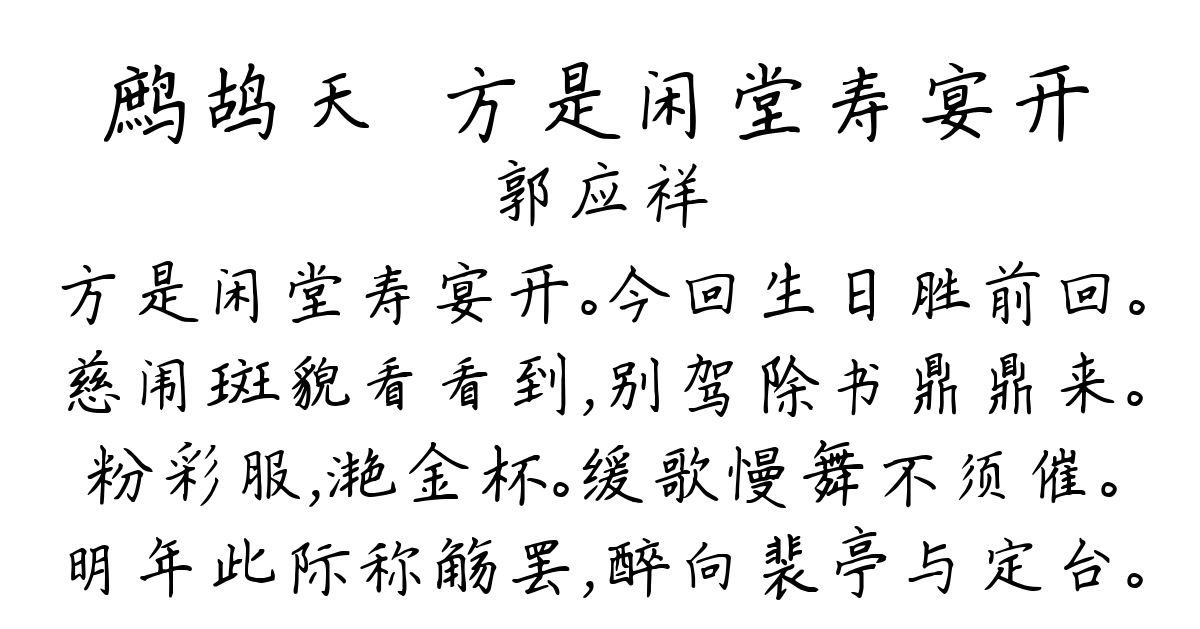 鹧鸪天 方是闲堂寿宴开
郭应祥
方是闲堂寿宴开。今回生日胜前回。
慈闱斑貌看看到,别驾除书鼎鼎来。
粉彩服,滟金杯。缓歌慢舞不须催。
明年此际称觞罢,醉向裴亭与定台。